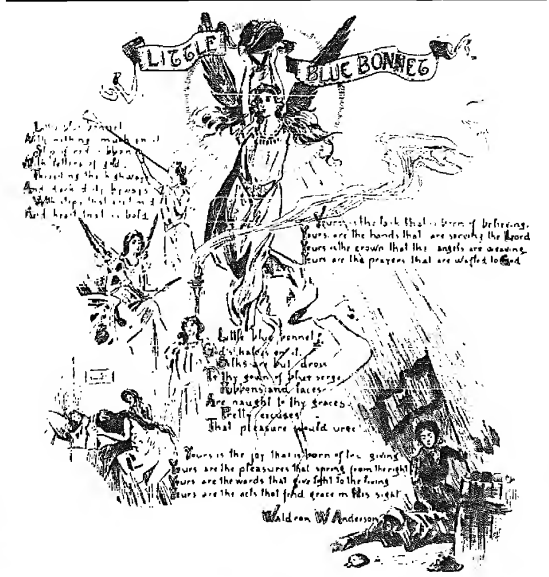 LITTLE
BLUE BONNET
Little blue bonnet
With nothing much on it
Strip of red ribbon
With letters of gold.
Threading the highways
And dark city byways
With steps that
And heart that is bold.
Yours is the task that is born of believing.
Yours are the hands that are serving the Lord
Yours is the crown that the angels are weaving
Yours are the prayers that are wafted to God
Little blue bonnet
God's halo's on it.
Silks are but dross
To thy gown of blue serge
Ribbons and laces
Are naught to thy graces
Pretty excuses
That pleasure would urge
Yours is the joy that is born of giving
Yours are the pleasures that spring from the right
Yours are the words that give light to the living
Yours are the acts that find grace in His sight
Waldron W Anderson